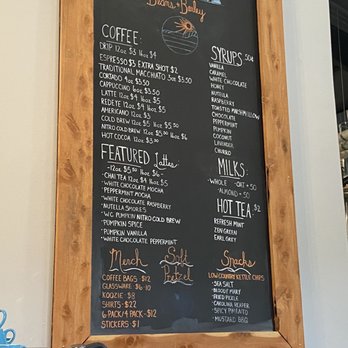 Beans & Barley
COFFEE:
DRIP 12oz $3 16oz $4
ESPRESSO $3 EXTRA SHOT $2
TRADITIONAL MACCHIATO 3oz $3.50
CORTADO 4oz $3.50
CAPPUCCINO 6oz $3.50
LATTE 12oz $4 16oz $5
REDEYE 12oz $4 16oz $5
AMERICANO 12oz $3
COLD BREW 12oz $5 16oz $5.50
NITRO COLD BREW 12oz $5.50 16oz $6
HOT COCOA 12oz $3.00
FEATURED Lattes
-12oz $5.50 $6-
-CHAI TEA 12oz $4 16oz $5
-WHITE CHOCOLATE MOCHA
-PEPPERMINT MOCHA
-WHITE CHOCOLATE RASPBERRY
-NUTELLA SMORES
-W.C. PUMPKIN NITRO COLD BREW
-PUMPKIN SPICE
-PUMPKIN VANILLA
-WHITE CHOCOLATE PEPPERMINT
SYRUPS .50¢
VANILLA
CARAMEL
WHITE CHOCOLATE
HONEY
NUTELLA
RASPBERRY
TOASTED MARSHMALLOW
CHOCOLATE
PEPPERMINT
PUMPKIN
COCONUT
LAVENDER
CHURRO
MILKS:
-WHOLE -OAT +.50
-ALMOND +.50
HOT TEA: $2
REFRESH MINT
ZEN GREEN
EARL GREY
Merch
COFFEE BAGS -$12
GLASSWARE $6-10
KOOZIE- $8
SHIRTS- $22
6 PACK/4 PACK -$12
STICKERS $1
Soft
Pretzel
Snacks
LOW COUNTRY KETTLE CHIPS
-SEA SALT
-BLOODY MARY
-FRIED PICKLE
-CAROLINA REAPER
-SPICY PIMENTO
-MUSTARD BBQ